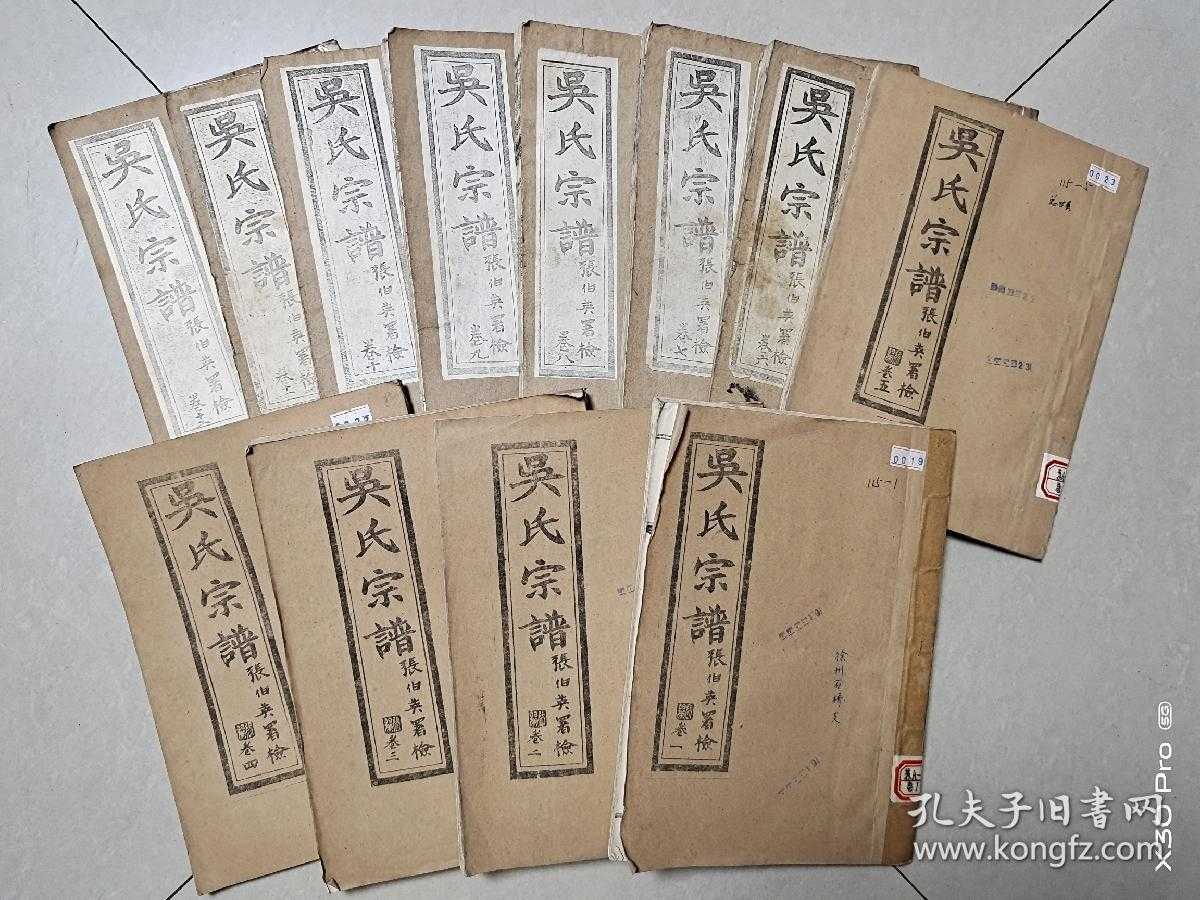 吳氏宗譜
張伯英署檢
吳氏宗譜
張伯英署檢
吳氏宗譜
張伯英署檢
卷十
吳氏宗譜
張伯英署檢
卷九
吳氏宗譜
張伯英署檢
卷八
吳氏宗譜
張伯英署檢
卷七
吳氏宗譜
張伯英署檢
卷六
吳氏宗譜
張伯英署檢
卷五
0023
115-5
吳氏宗譜
張伯英署檢
卷四
吳氏宗譜
張伯英署檢
卷三
吳氏宗譜
張伯英署檢
卷二
吳氏宗譜
張伯英署檢
卷一
0019
115-1
X30 Pro 5G
孔夫子旧书网
www.kongfz.com